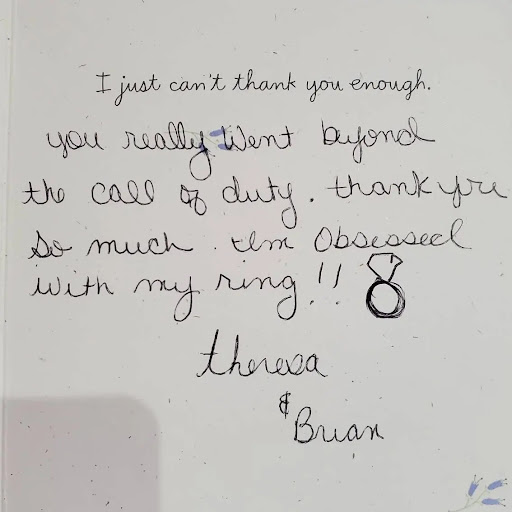 I just can't thank you enough.
you really Went beyond
the call of duty. thank you
So much. Im Obsessed
with my ring!!
theresa
&
Brian